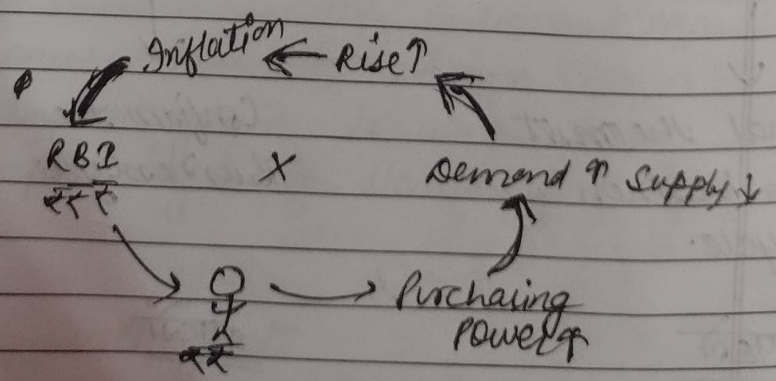 Inflation ← Rise↑
RBI X Demand ↑ Supply ↓
₹₹₹
Purchasing
Power↑
₹₹